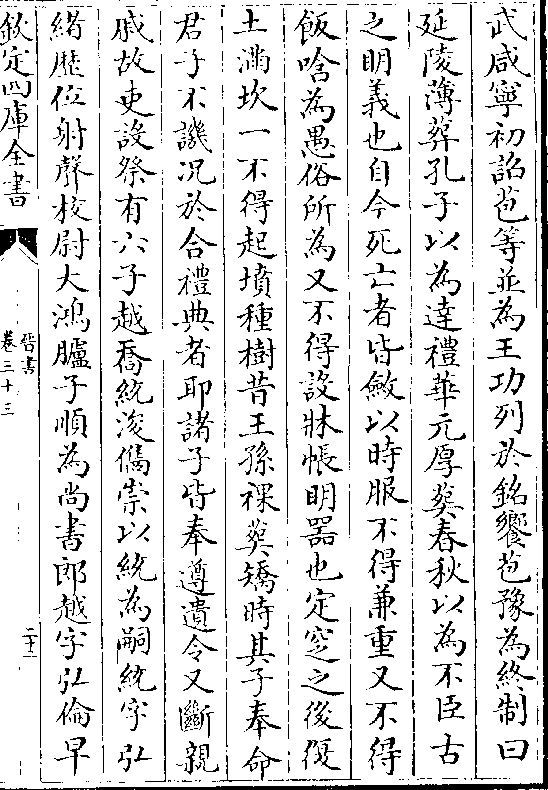 武咸寧初詔苞等並為王功列於銘饗苞豫為終制曰
延陵薄葬孔子以為達禮華元厚葬春秋以為不臣古
之明義也自今死亡者皆斂以時服不得兼重又不得
飯唅為愚俗所為又不得設牀帳明器也定窆之後復
土滿坎一不得起墳種樹昔王孫祼葬矯時其子奉命
君子不譏况於合禮典者耶諸子皆奉遵遺令又斷親
戚故吏設祭有六子越喬統浚儁崇以統為嗣統字弘
緒歴位射聲校尉大鴻臚子順為尚書郎越字弘倫早
欽定四庫全書
晉書
卷三十三
二十二